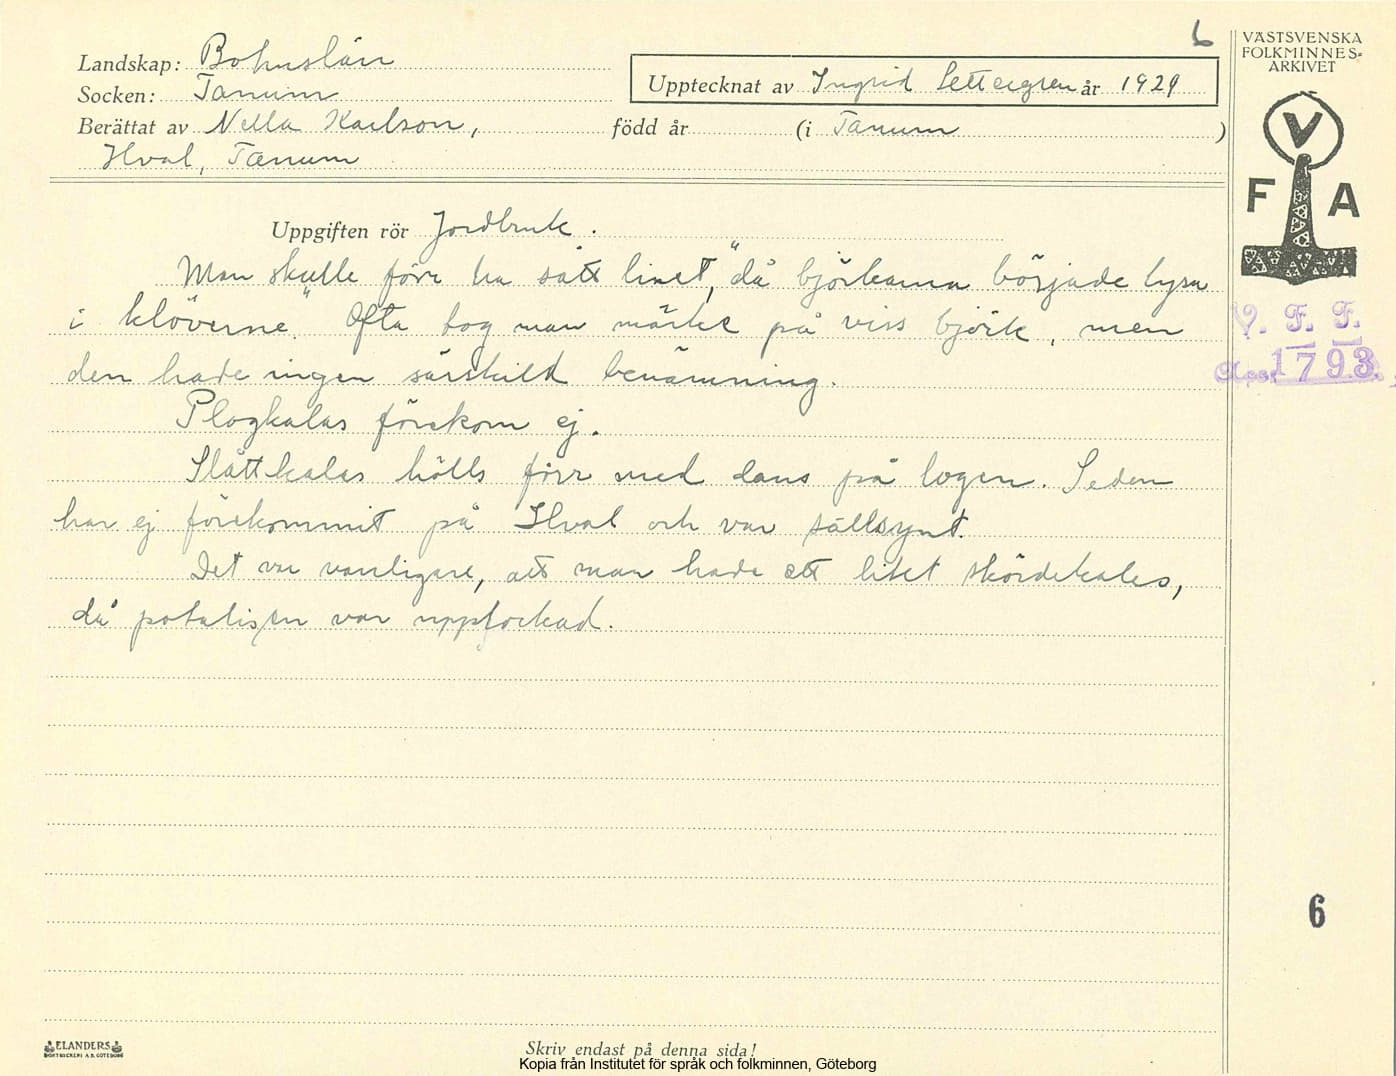 6
VÄSTSVENSKA
FOLKMINNES-
ARKIVET
Landskap: Bohuslän
Upptecknat av Ingrid Settergren år 1929
Socken: Tanum
Berättat av Nella Karlson, född år (i Tanum )
Hval, Tanum
V
F A
Uppgiften rör Jordbruk.
Man skulle förr ha sått linet, "då björkarna började lysa
i klöverne." Ofta tog man märke på viss björk, men
V. F. F.
den hade ingen särskild benämning.
Acc. 1793.
Plogkalas förekom ej.
Slåttkalas hölls förr med dans på logen. Seden
har ej förekommit på Hval och var sällsynt.
Det var vanligare, att man hade ett litet skördekalas,
då potatisen var upplockad.
6
ELANDERS
BOKTRYCKERI A.B. GÖTEBORG
Skriv endast på denna sida!
Kopia från Institutet för språk och folkminnen, Göteborg